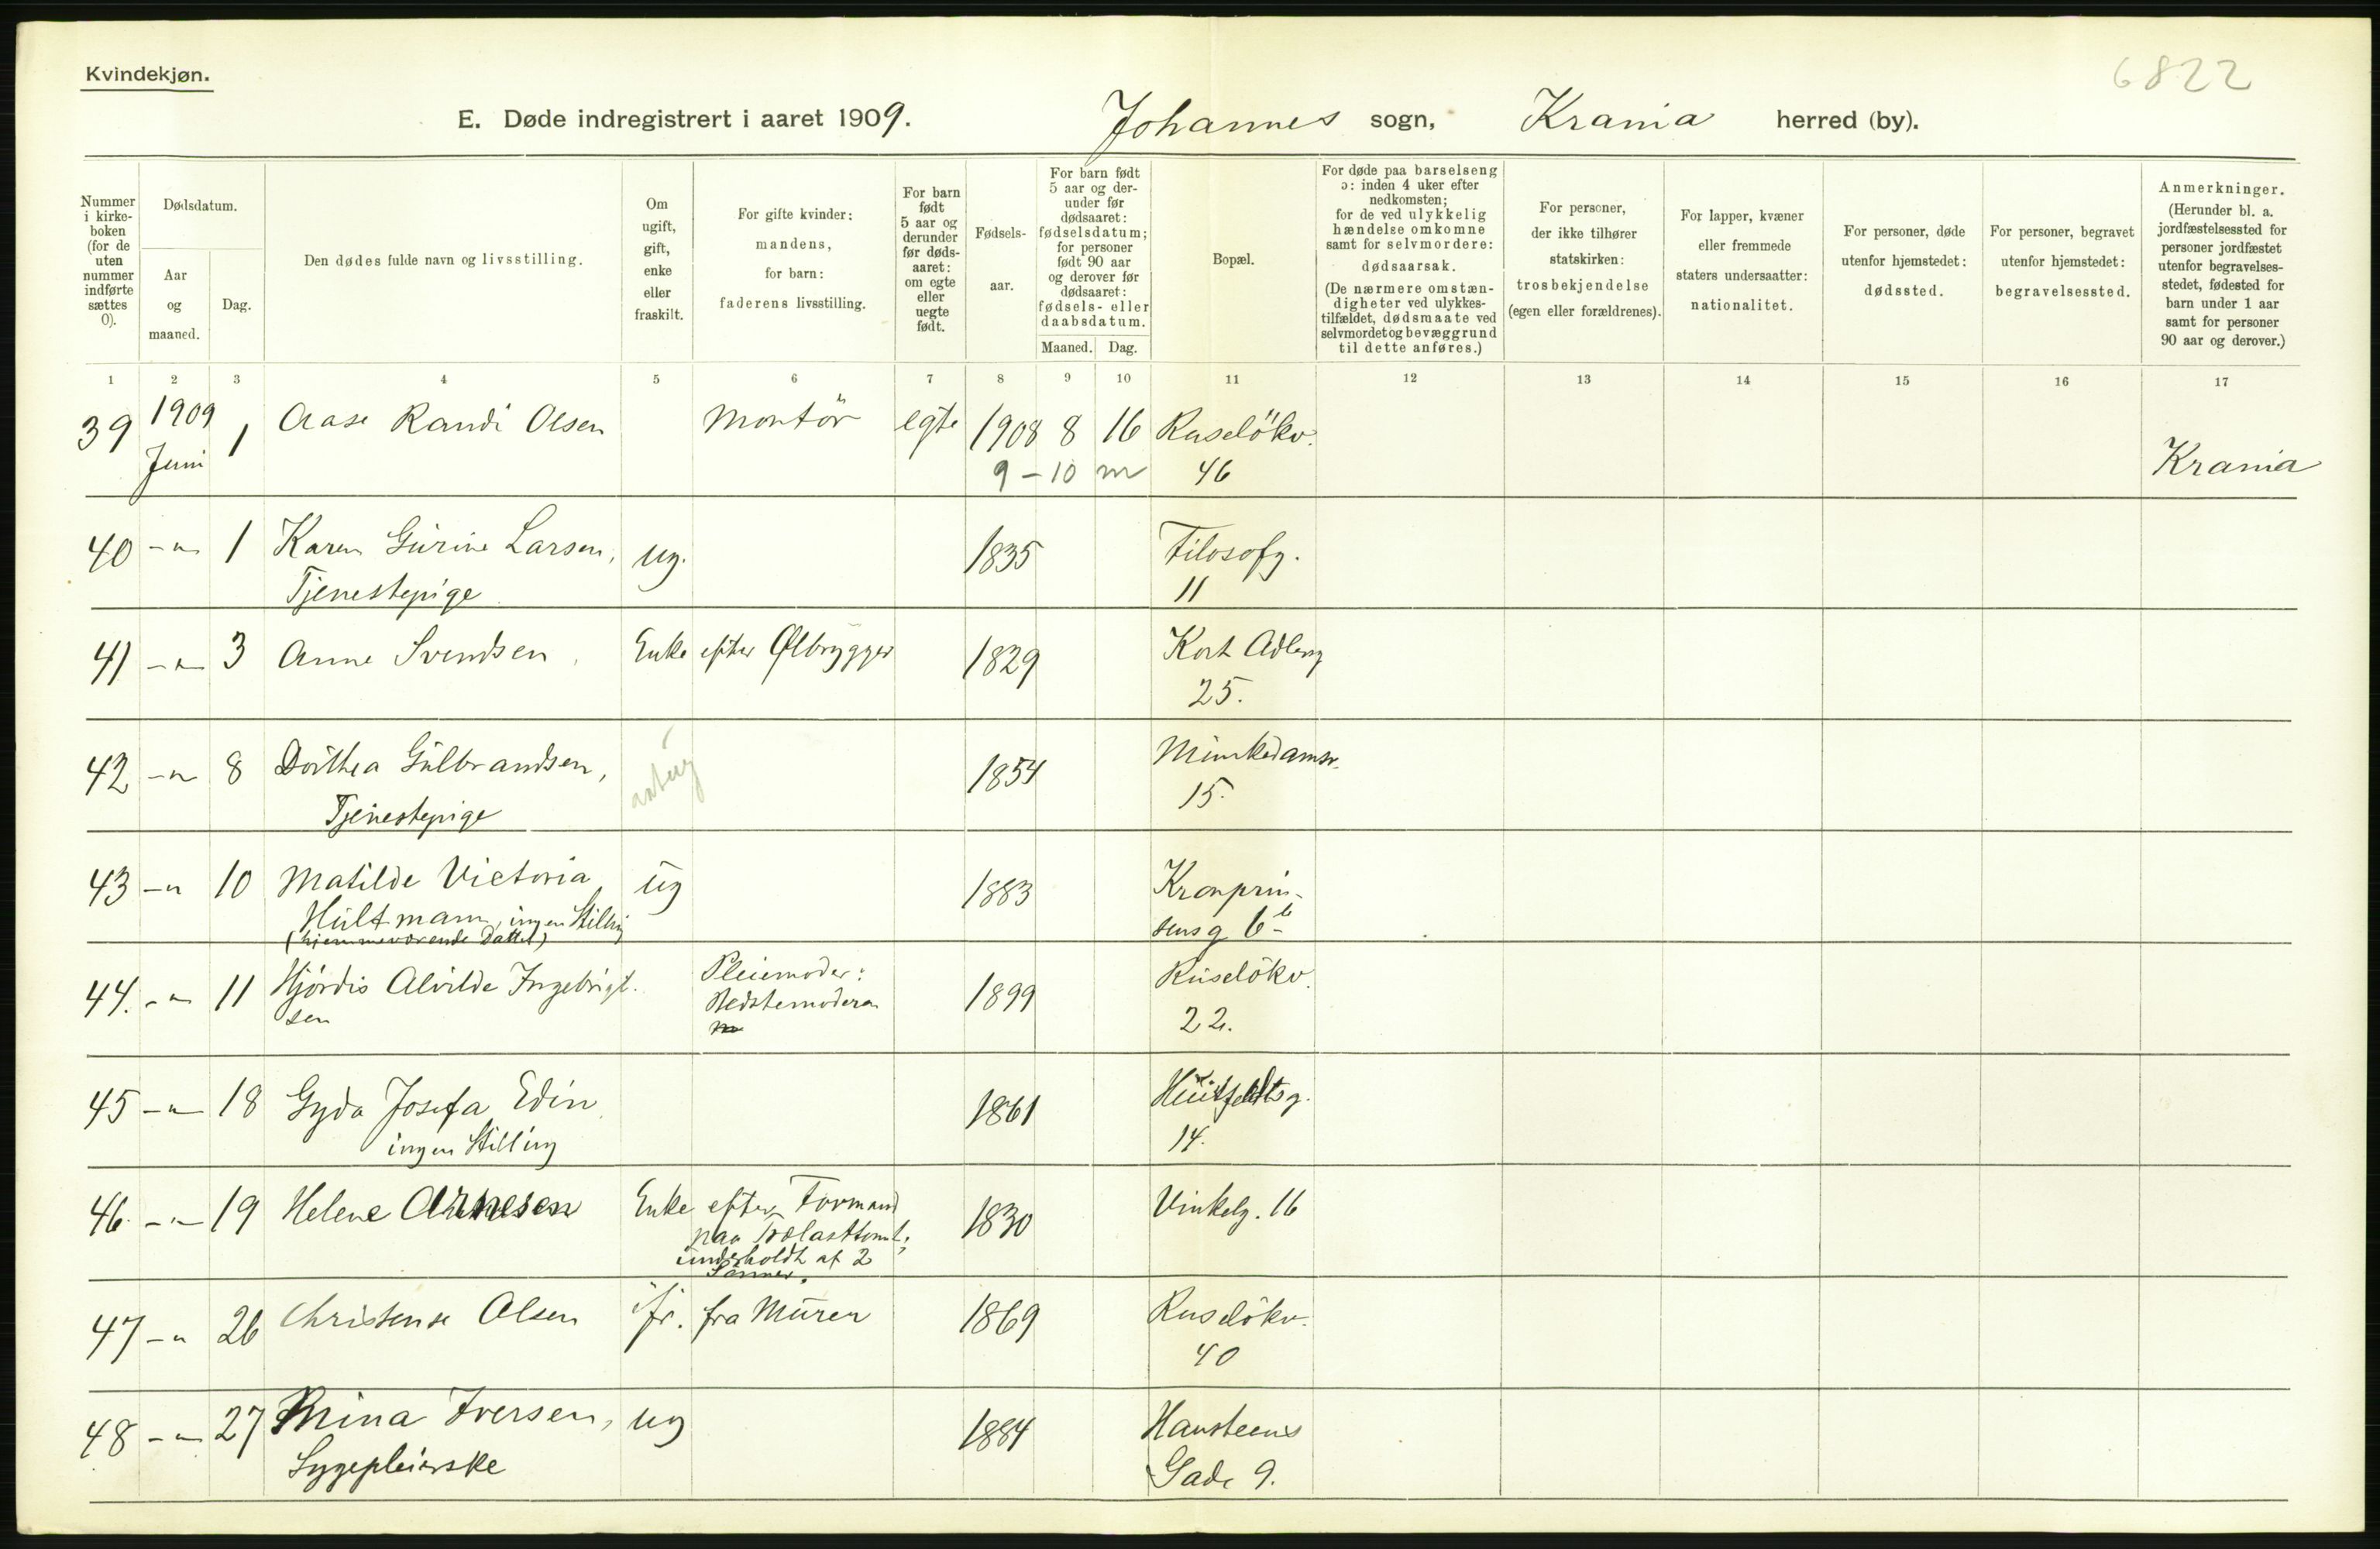 Kvindekjøn.
6822
E. Døde indregistrert i aaret 1909. Johannes sogn, Krania herred (by).
Nummer i kirke-boken (for de uten nummer indførte sættes 0).
Dødsdatum.
Aar og maaned.
Dag.
Den dødes fulde navn og livsstilling.
Om ugift, gift, enke eller fraskilt.
For gifte kvinder: mandens, for barn: faderens livsstilling.
For barn født 5 aar og derunder før døds-aaret: om egte eller uegte født.
Fødsels-aar.
For barn født 5 aar og der-under før dødsaaret: fødselsdatum; for personer født 90 aar og derover før dødsaaret: fødsels- eller daabsdatum.
Maaned. Dag.
Bopæl.
For døde paa barselseng ɔ: inden 4 uker efter nedkomsten; for de ved ulykkelig hændelse omkomne samt for selvmordere: dødsaarsak. (De nærmere omstæn-digheter ved ulykkes-tilfældet, dødsmaate ved selvmordet og bevæggrund til dette anføres.)
For personer, der ikke tilhører statskirken: trosbekjendelse (egen eller forældrenes).
For lapper, kvæner eller fremmede staters undersaatter: nationalitet.
For personer, døde utenfor hjemstedet: dødssted.
For personer, begravet utenfor hjemstedet: begravelsessted.
Anmerkninger. (Herunder bl. a. jordfæstelsessted for personer jordfæstet utenfor begravelses-stedet, fødested for barn under 1 aar samt for personer 90 aar og derover.)
1 2 3 4 5 6 7 8 9 10 11 12 13 14 15 16 17
39 1909 Juni 1 Aase Randi Olsen Montör egte 1908 8 16 Ruselökv.
9 - 10 m 46 Krania
40 -"- 1 Karen Gurine Larsen, ug. 1835 Filosofg.
Tjenestepige 11
41 -"- 3 Anne Svendsen, Enke efter Ølbrygger 1829 Kort Adlerg
25.
42 -"- 8 Dorthea Gulbrandsen, 1854 Munkedamsv.
Tjenestepige 15.
43 -"- 10 Matilde Victoria ug 1883 Kronprin-
Hultmann, ingen Stilling sensg 6b
(hjemmeværende Datter)
44. -"- 11 Hjördis Alvilde Ingebrigt. Pleiemoder: 1899 Ruselökv.
sen Bedstemoderen 22.
45 -"- 18 Gyda Josefa Edin 1861 Huitfeldtsg.
ingen Stilling 14.
46. -"- 19 Helene Arnesen Enke efter Formand 1830 Vinkelg. 16
paa Trælasttomt;
underholdt af 2
Sønner.
47 -"- 26 Christense Olsen fr. fra Murer 1869 Ruselökv.
40
48 -"- 27 Mina Iversen, ug 1884 Hansteens
Sygepleierske Gade 9.